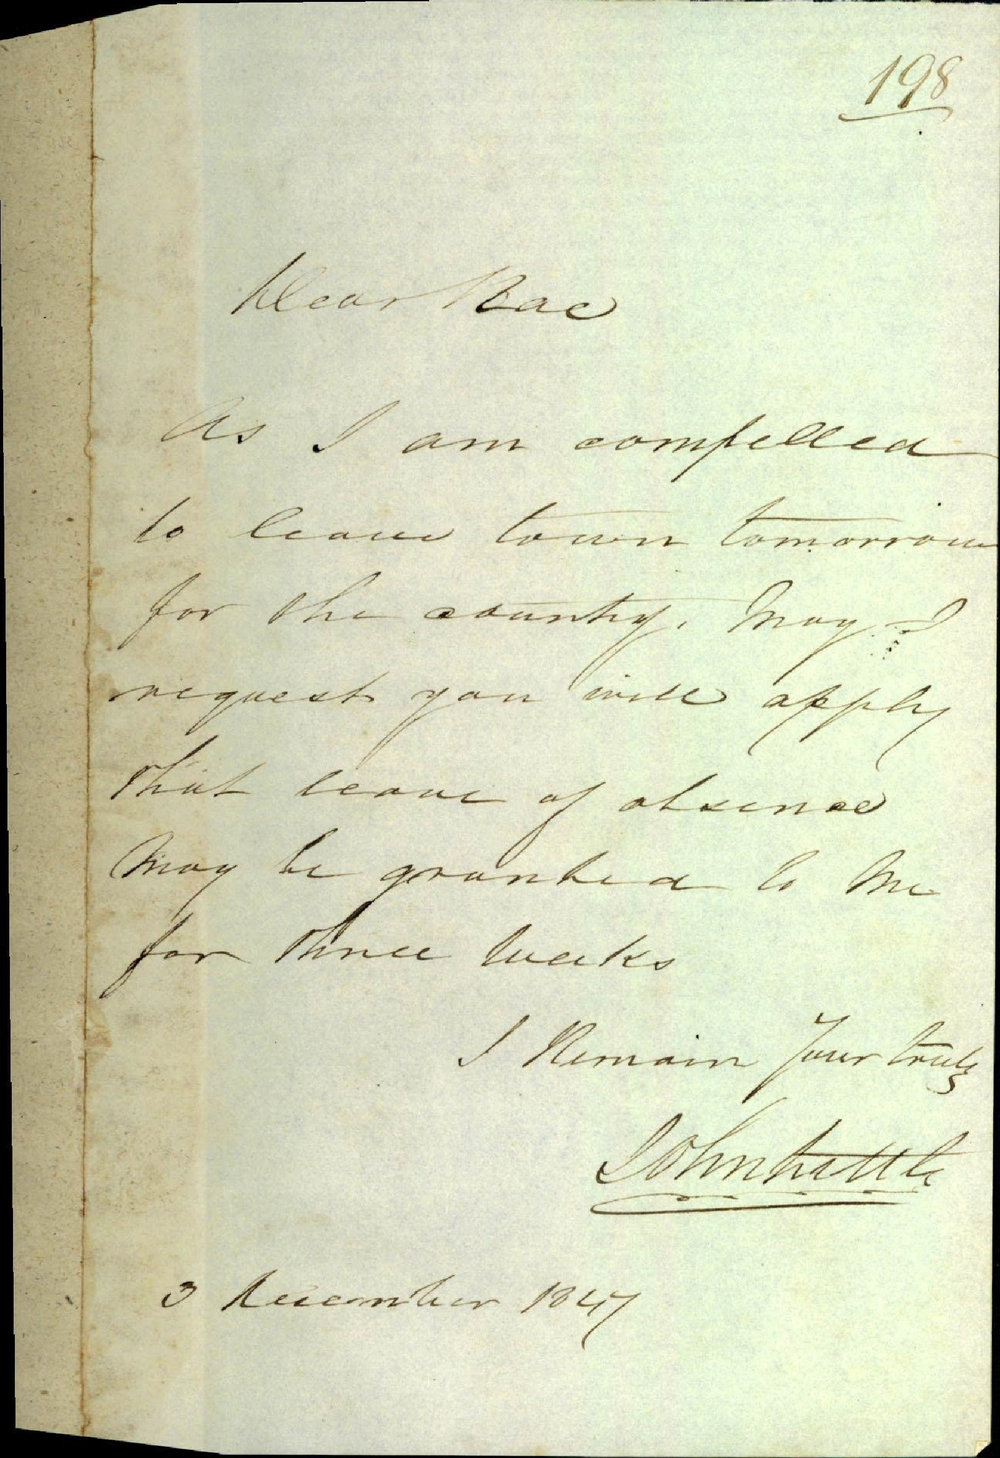 198
Dear Rae
As I am compelled
to leave town tomorrow
for the county, May I
request you will apply
that leave of absence
May be granted to Me
for three Weeks
I Remain Your truly
John
3 December 1847